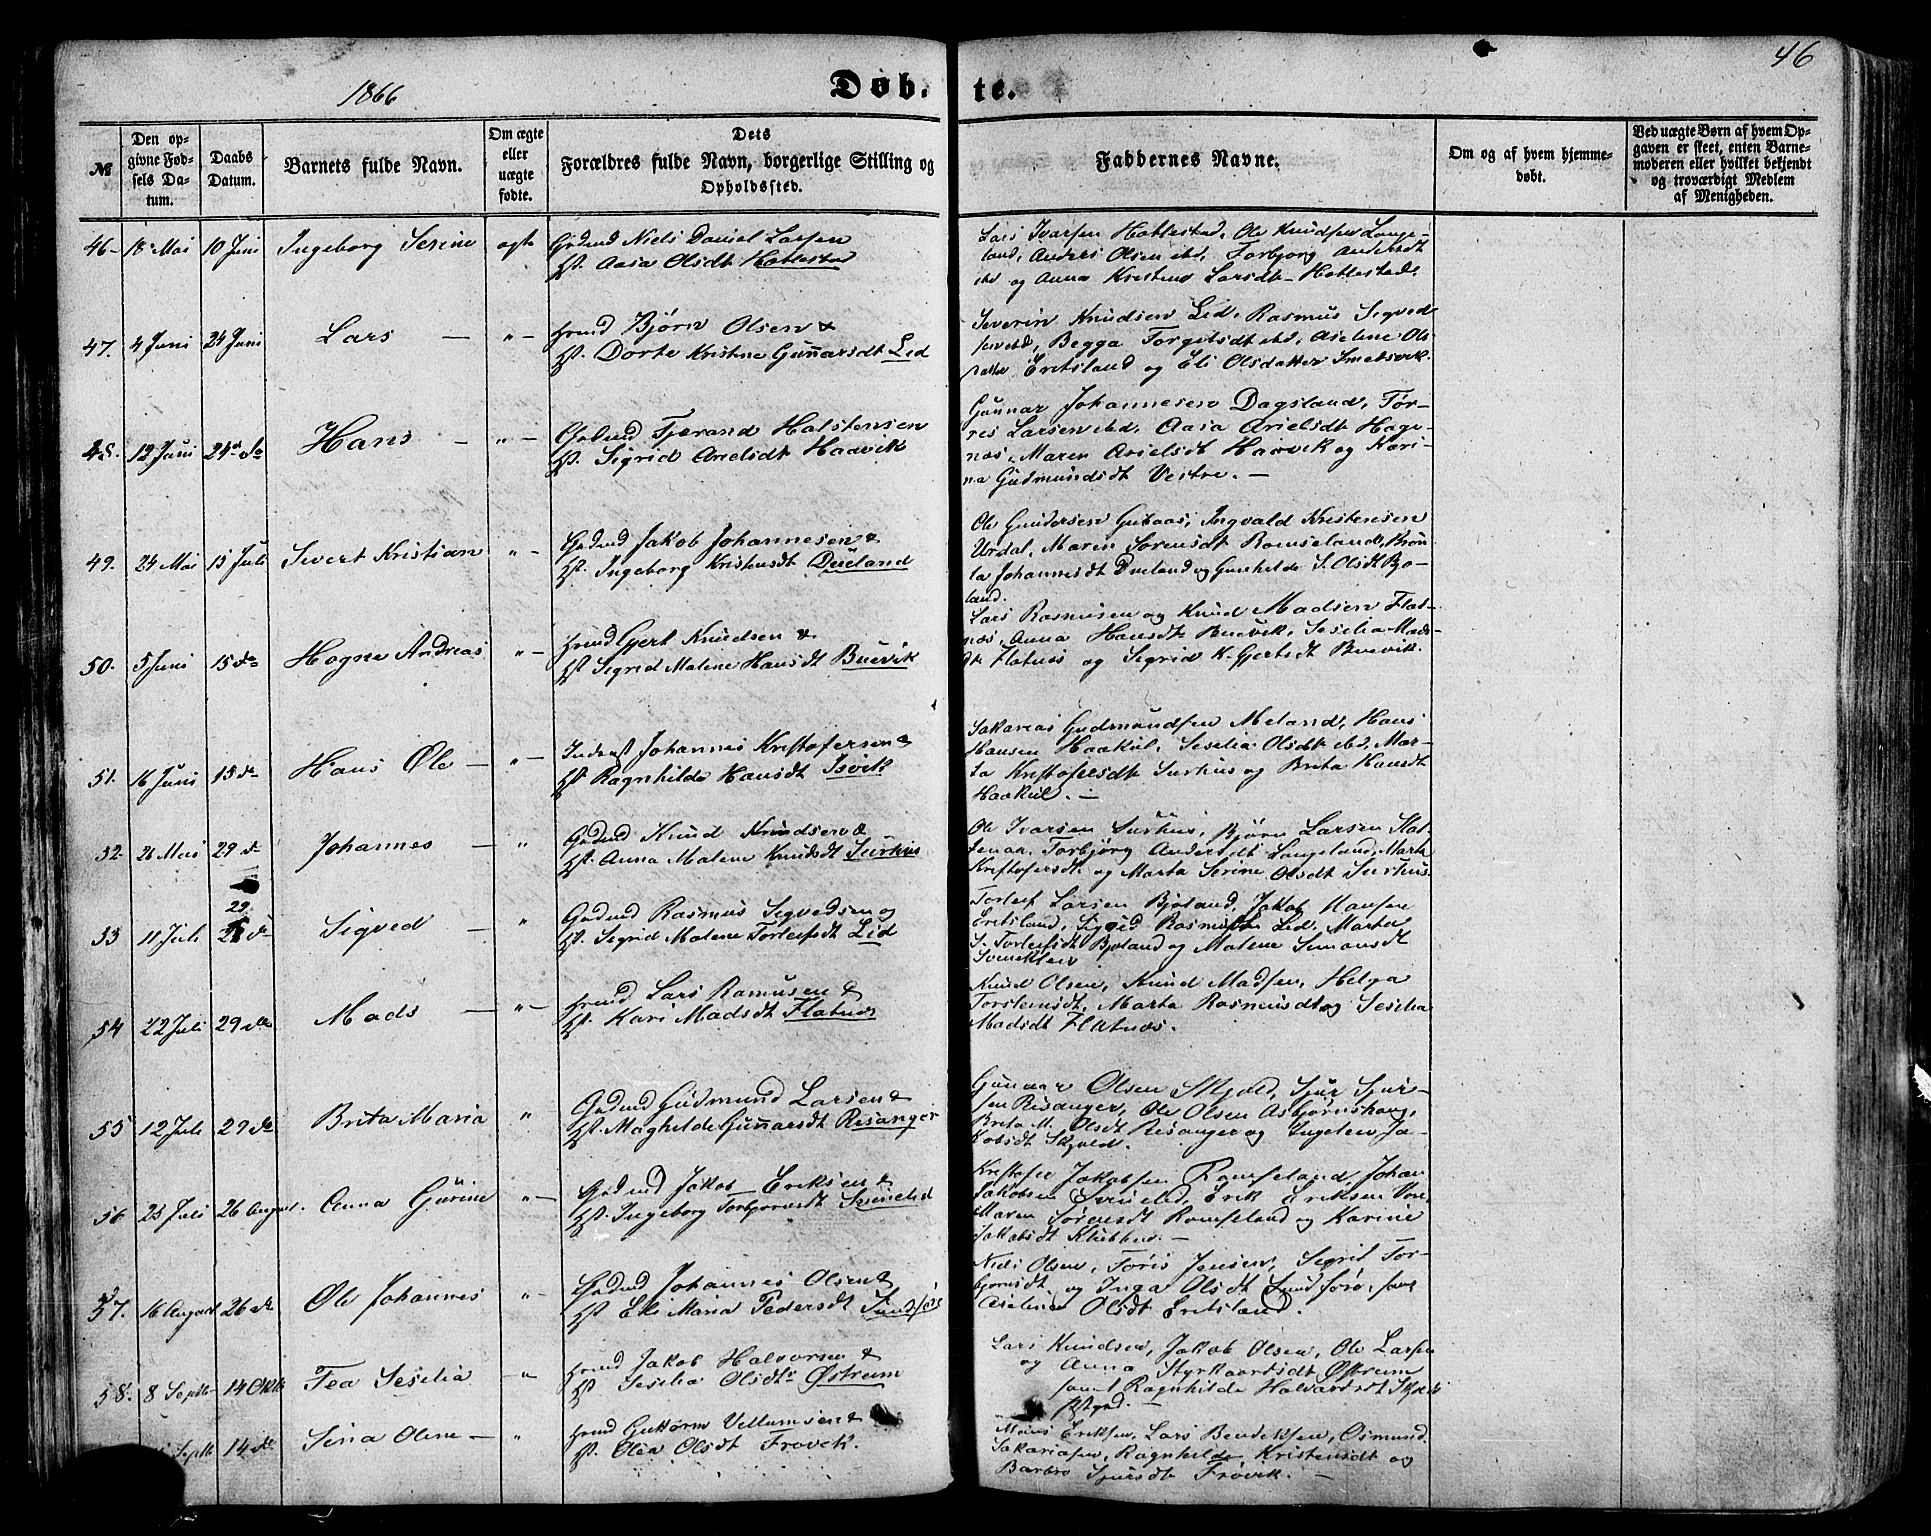 46
1866
Døb. te.
№
Den opgivne Fødsels Datum.
Daabs Datum.
Barnets fulde Navn.
Om ægte eller uægte fødte.
Dets Forældres fulde Navn, borgerlige Stilling og Opholdssted.
Faddernes Navne.
Om og af hvem hjemmedøbt.
Ved uægte Børn af hvem Opgaven er skeet, enten Barnemoderen eller hvilket bekjendt og troværdigt Medlem af Menigheden.
46- 18 Mai 10 Juni Ingeborg Serine ægte
Gdmd Niels Daniel Larsen
Hst. Aasa Olsdt Hattestad
Lars Ivarsen Hattestad, Ole Knudsen Lange-
land, Anders Olsen ibd, Torbjorg Andersdt
ibd og Anna Kristine Larsdt Hattestad.
47. 4 Juni 24 Juni Lars — „ —
Hmd Bjørn Olsen &
Hst. Dorte Kristine Gunnarsdt Lid
Severin Knudsen Lid, Rasmus Sigved
sen ibd, Begga Torgelsdt ibd, Aselene Ols
datter Eretsland og Eli Olsdatter Smedsvik.
48. 12 Juni 24 do Hans — „ —
Gdmd Tjerand Halstensen
Hst. Sigrid Arielsdt Haavik
Gunnar Johannesen Dagsland, Tør-
res Larsen ibd, Aasa Arielsdt Hage-
næs, Maren Arielsdt Haavik og Kari-
na Gudmundsdt Vestre. —
49. 24 Mai 15 Juli Sivert Kristian „ —
Gdmd Jakob Johannesen &
Hst. Ingeborg Kristensdt Dueland
Ole Gundersen Gubaas, Ingvald Kristensen
Urdal, Maren Sørensdt Romseland,
la Johannesdt Dueland og Gunhilde S. Olsdt Bjo-
land.
50. 5 Juni 15 do Hogne Andreas „ —
Hmd Gjert Knudsen &
Hst. Sigrid Malene Hansdt Buevik
Lars Rasmusen og Knud Madsen Flat-
næs, Anna Hansdt Buevik, Seselia Mads-
dt Flatnæs og Sigrid K. Gjertsdt Buevik.
51. 16 Juni 15 do Hans Ole — „ —
Inderst Johannes Kristofersen &
Hst. Ragnhilde Hansdt Isvik
Sakarias Gudmundsen Meland, Hans
Hansen Haakul, Seselia Olsdt ibd, Mar-
ta Kristofersdt Surhus og Brita Hansdt
Haakul. —
52. 26 Mai 29 do Johannes — „
Gdmd Knud Knudsen &
Hst. Anna Malene Knudsdt Surhus
Ole Ivarsen Surhus, Bjørn Larsen
Torbjörg Andersdt Langeland, Marta
Kristofersdt og Marta Serine Olsdt Surhus.
53 11 Juli 29 do Sigved — „
Gdmd Rasmus Sigvedsen og
Hst. Sigrid Malene Torleifsdt Lid
Torleif Larsen Bjoland, Jakob Hansen
Eretsland, Sigved Rasmusen Lid, Marta
S. Torleifsdt Bjoland og Malene Simonsdt
54 22 Juli 29 do Mads — „ —
Hmd Lars Ramusen &
Hst. Kari Madsdt Flatnæs
Knud Olsen, Knud Madsen, Helga
Torstensdt, Marta Rasmusdt og Seselia
Madsdt Flatnæs.
55 12 Juli 29 do Brita Maria „
Gdmd Gudmund Larsen &
Hst. Maghilde Gunnarsdt Risanger
Gunnar Olsen Skjold, Sjur Sjur-
sen Risanger, Ole Olsen Asbjørnshaug,
Brita M. Olsdt Risanger og Ingelev Ja-
kobsdt Skjold.
56 23 Juli 26 August. Anna Gurine „ —
Gdmd Jakob Eriksen &
Hst. Ingeborg Torbjornsdt
Kristofer Jakobsen Romseland, Johan
Jakobsen ibd, Erik Eriksen
Maren Sørensdt Romseland og Karine
Jakobsdt
57. 16 August 26 do Ole Johannes „ —
Gdmd Johannes Olsen &
Hst. Eli Maria Pedersdt Sundførø
Niels Olsen, Tøris Jensen, Segrid Tor-
bjornsdt og Inga Olsdt Sundførø, samt
Aselena Olsdt Eretsland.
58. 8 Septb 14 Oktb Tea Seselia — „
Hmd Jakob Halvorsen &
Hst. Seselia Olsdt Østrem
Lars Knudsen, Jakob Olsen, Ole Larsen
og Anna Styrkaarsdt Østreim
samt Ragnhilde Halvardsdt
Septb 14 do Sina Olene — „
Hmd Guttorm Vellumsen &
Hst. Olea Olsdt Frøvik.
Eriksen, Lars Bendiksen, Osmund
Sakariasen, Ragnhilde Kristensdt og
Barbro Sjursdt Frøvik. —